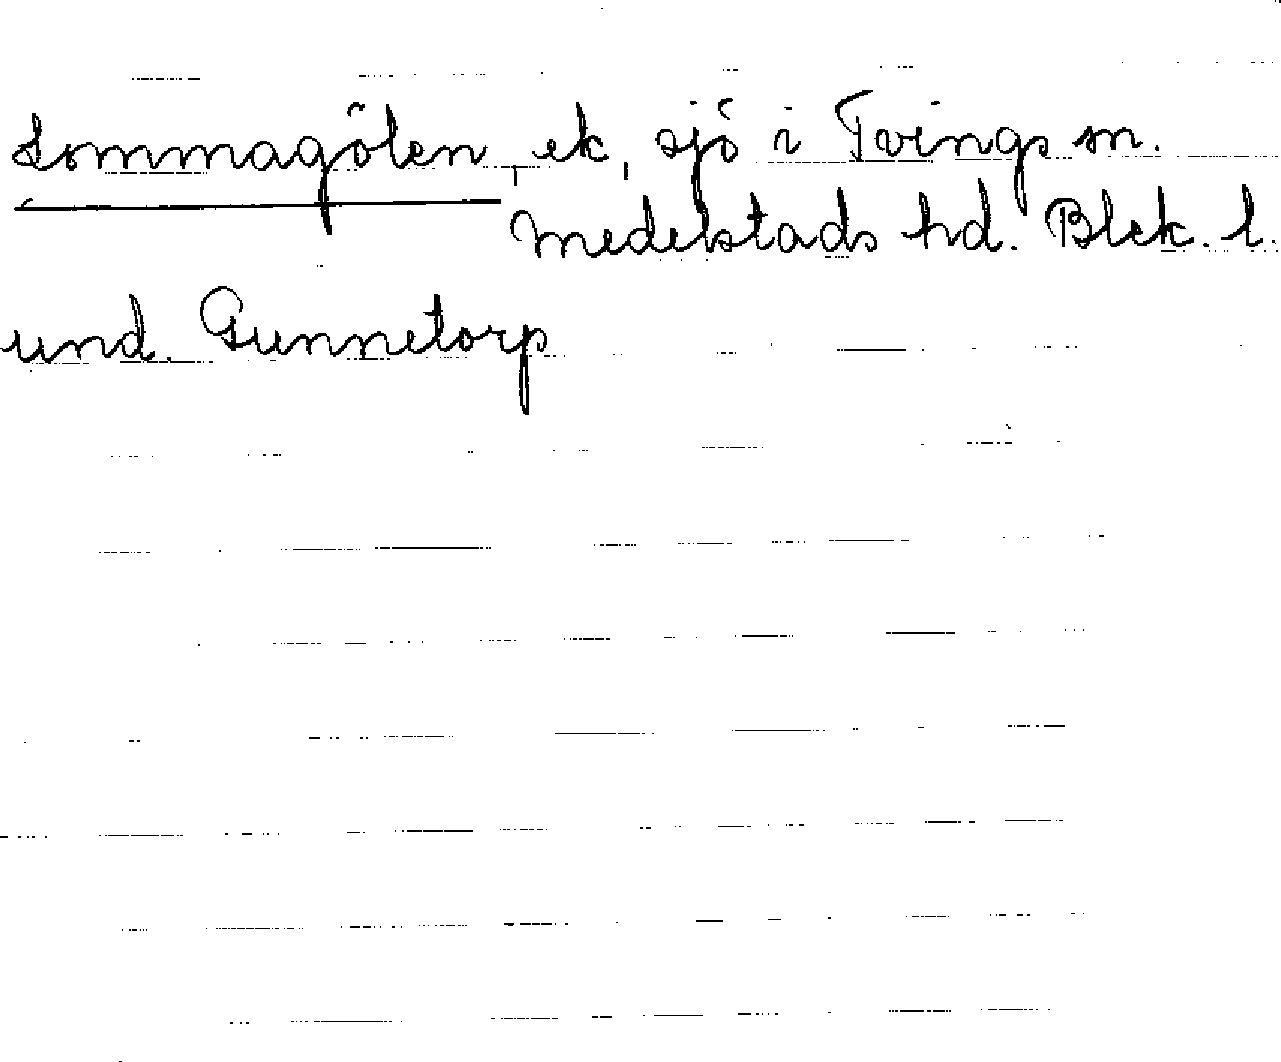 Lommagölen, ek, sjö i Tvings sn.
Medelstads hd. Blek. l.
und. Gunnetorp